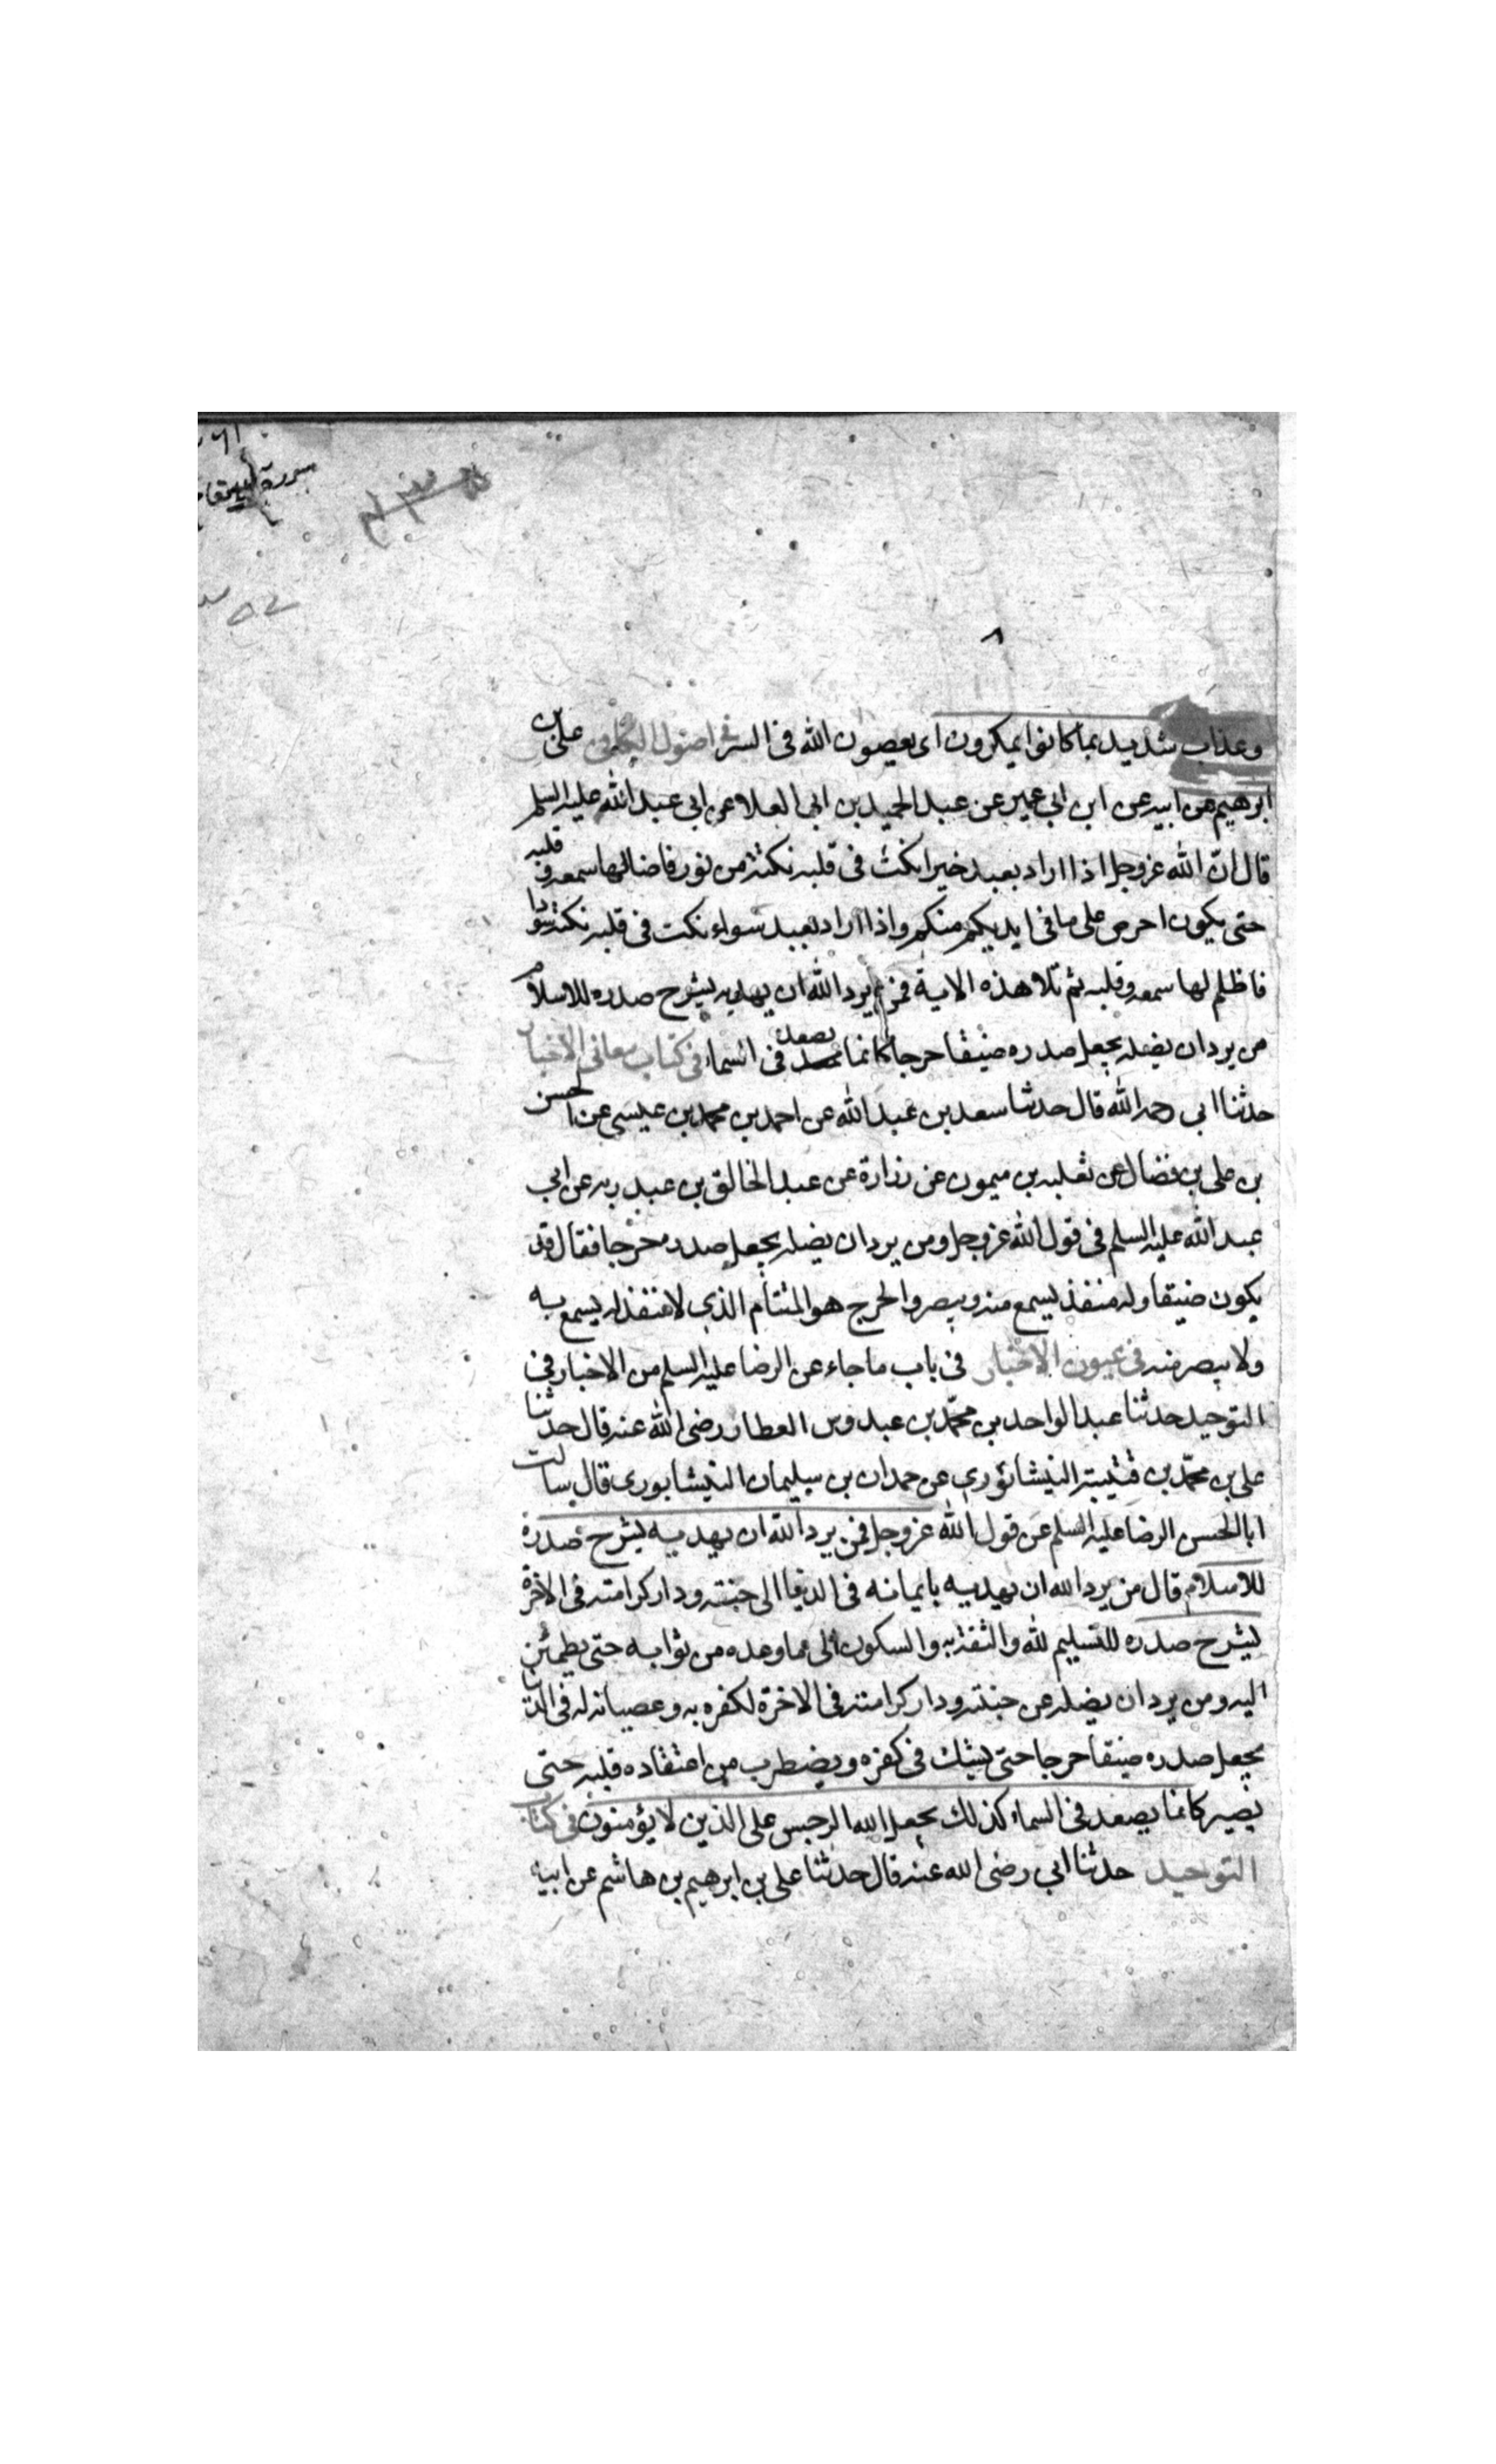 وعذاب شديد بما كانوا يمكرون اى يعصون الله فى السر فى اصول الكافى على بن
ابرهيم عن ابيه عن ابن ابى عمير عن عبد الحميد بن ابى العلا عن ابى عبد الله عليه السلم
قال ان الله عز وجل اذا اراد بعبد خيرا نكت فى قلبه نكتة من نور فاضا لها سمعه و قلبه
حتى يكون احرص على ما فى ايديكم منكم واذا اراد بعبد سواء نكت فى قلبه نكتة سودا
فاظلم لها سمعه وقلبه ثم تلا هذه الاية فمن يرد الله ان يهديه يشرح صدره للاسلام
من يرد ان يضله يجعل صدره ضيقا حرجا كانما يصعد فى السماء فى كتاب معانى الاخبار
حدثنا ابى رحمه الله قال حدثنا سعد بن عبد الله عن احمد بن محمد بن عيسى عن الحسن
بن على بن فضال عن ثعلبه بن ميمون عن زرارة عن عبد الخالق بن عبد ربه عن ابى
عبد الله عليه السلم فى قول الله عز وجل ومن يرد ان يضله يجعل صدره حرجا فقال قد
يكون ضيقا وله منفذ يسمع منه ويبصر والحرج هو الملتأم الذى لا منفذ له يسمع به
ولا يبصر منه فى عيون الاخبار فى باب ما جاء عن الرضا عليه السلم من الاخبار فى
التوحيد حدثنا عبد الواحد بن محمّد بن عبدوس العطار رضى الله عنه قال حدثنا
على بن محمّد بن قتيبة النيشابورى عن حمدان بن سليمان النيشابورى قال سالت
ابا الحسن الرضا عليه السلم عن قول الله عز وجل فمن يرد الله ان يهديه يشرح صدره
للاسلام قال من يرد الله ان يهديه بايمانه فى الدنيا الى جنته ودار كرامته فى الاخرة
يشرح صدره للتسليم لله والثقة به والسكون الى ما وعده من ثوابه حتى يطمئن
اليه ومن يرد ان يضله عن جنته ودار كرامته فى الاخرة لكفره به وعصيانه له فى الدنيا
يجعل صدره ضيقا حرجا حتى يشك فى كفره ويضطرب من اعتقاده قلبه حتى
يصير كانما يصعد فى السماء كذلك يجعل الله الرجس على الذين لا يؤمنون فى كتاب
التوحيد حدثنا ابى رضى الله عنه قال حدثنا على بن ابرهيم بن هاشم عن ابيه